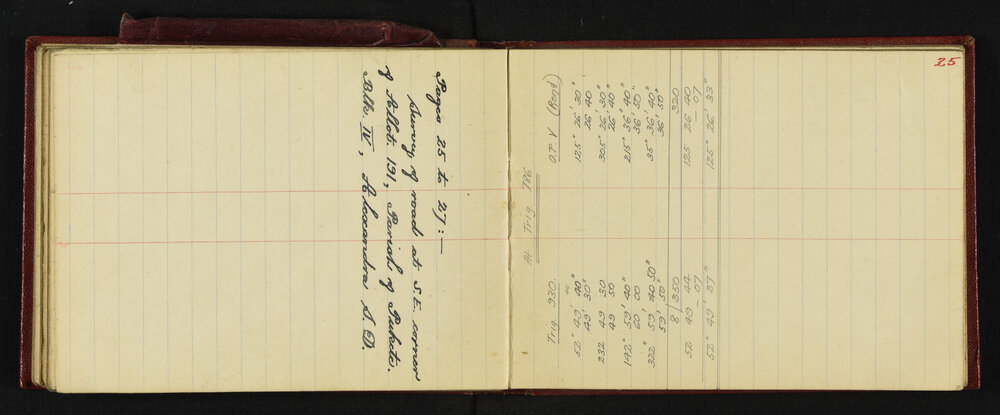 Pages 25 to 27:—
Survey of road at S.E. corner
of Allot. 191, Parish of Pukete.
Blk. IV, Alexandra S.D.
25
At Trig. 786
Trig. 930. O.P. V (Bend)
52° 49' 40" 125° 26' 30"
49' 30" 26' 40
232 49 30 305° 26' 30"
49 50 26' 40"
142° 59' 40" 215° 36' 40"
60' 00 36' 50"
322° 59' 40 50" 35° 36' 40"
59' 50" 36' 50"
8 / 350 320
52 49 44 125 26 40
— 07 — 07
52° 49' 37" 125° 26' 33"